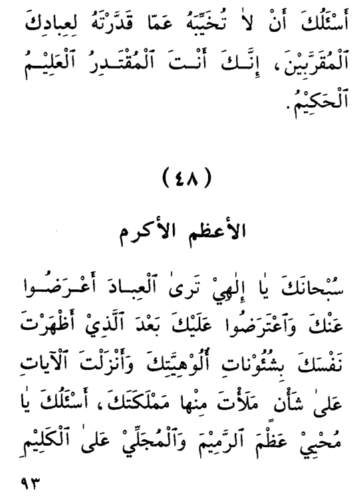 أَسْئَلُكَ أَنْ لاٰ تُخَيِّبَهُ عَمّا قَدَّرْتَهُ لِعِبادِكَ
ٱلْمُقَرَّبِيْنَ، إِنَّـكَ أَنْـتَ ٱلْمُقْتَـدِرُ ٱلْعَلِيْـمُ
ٱلْحَكِيْمُ.
(٤٨)
الأعظم الأكرم
سُبْحانَكَ يٰا إِلٰهِيْ تَرىٰ ٱلْعِبادَ أَعْـرَضُـوا
عَنْكَ وَٱعْتَرَضُوا عَلَيْكَ بَعْدَ ٱلَّذِيْ أَظْهَرْتَ
نَفْسَكَ بِشُئُوْناتِ أُلُوْهِيَّتِكَ وَأَنْزَلْتَ ٱلْآياتِ
عَلىٰ شَأْنٍ مَلَأْتَ مِنْها مَمْلَكَتَكَ، أَسْئَلُكَ يٰا
مُحْيِيْ عَظْمِ ٱلرَّمِيْمِ وَٱلْمُجَلِّيْ عَلىٰ ٱلْكَلِيْمِ
٩٣